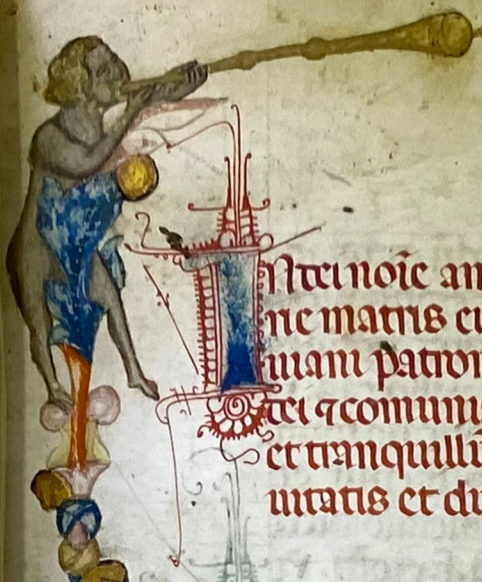 IN dei noĩe am
ne matris eiu
uiani patron
dei ⁊ comunis
et tranquilli
uitatis et di